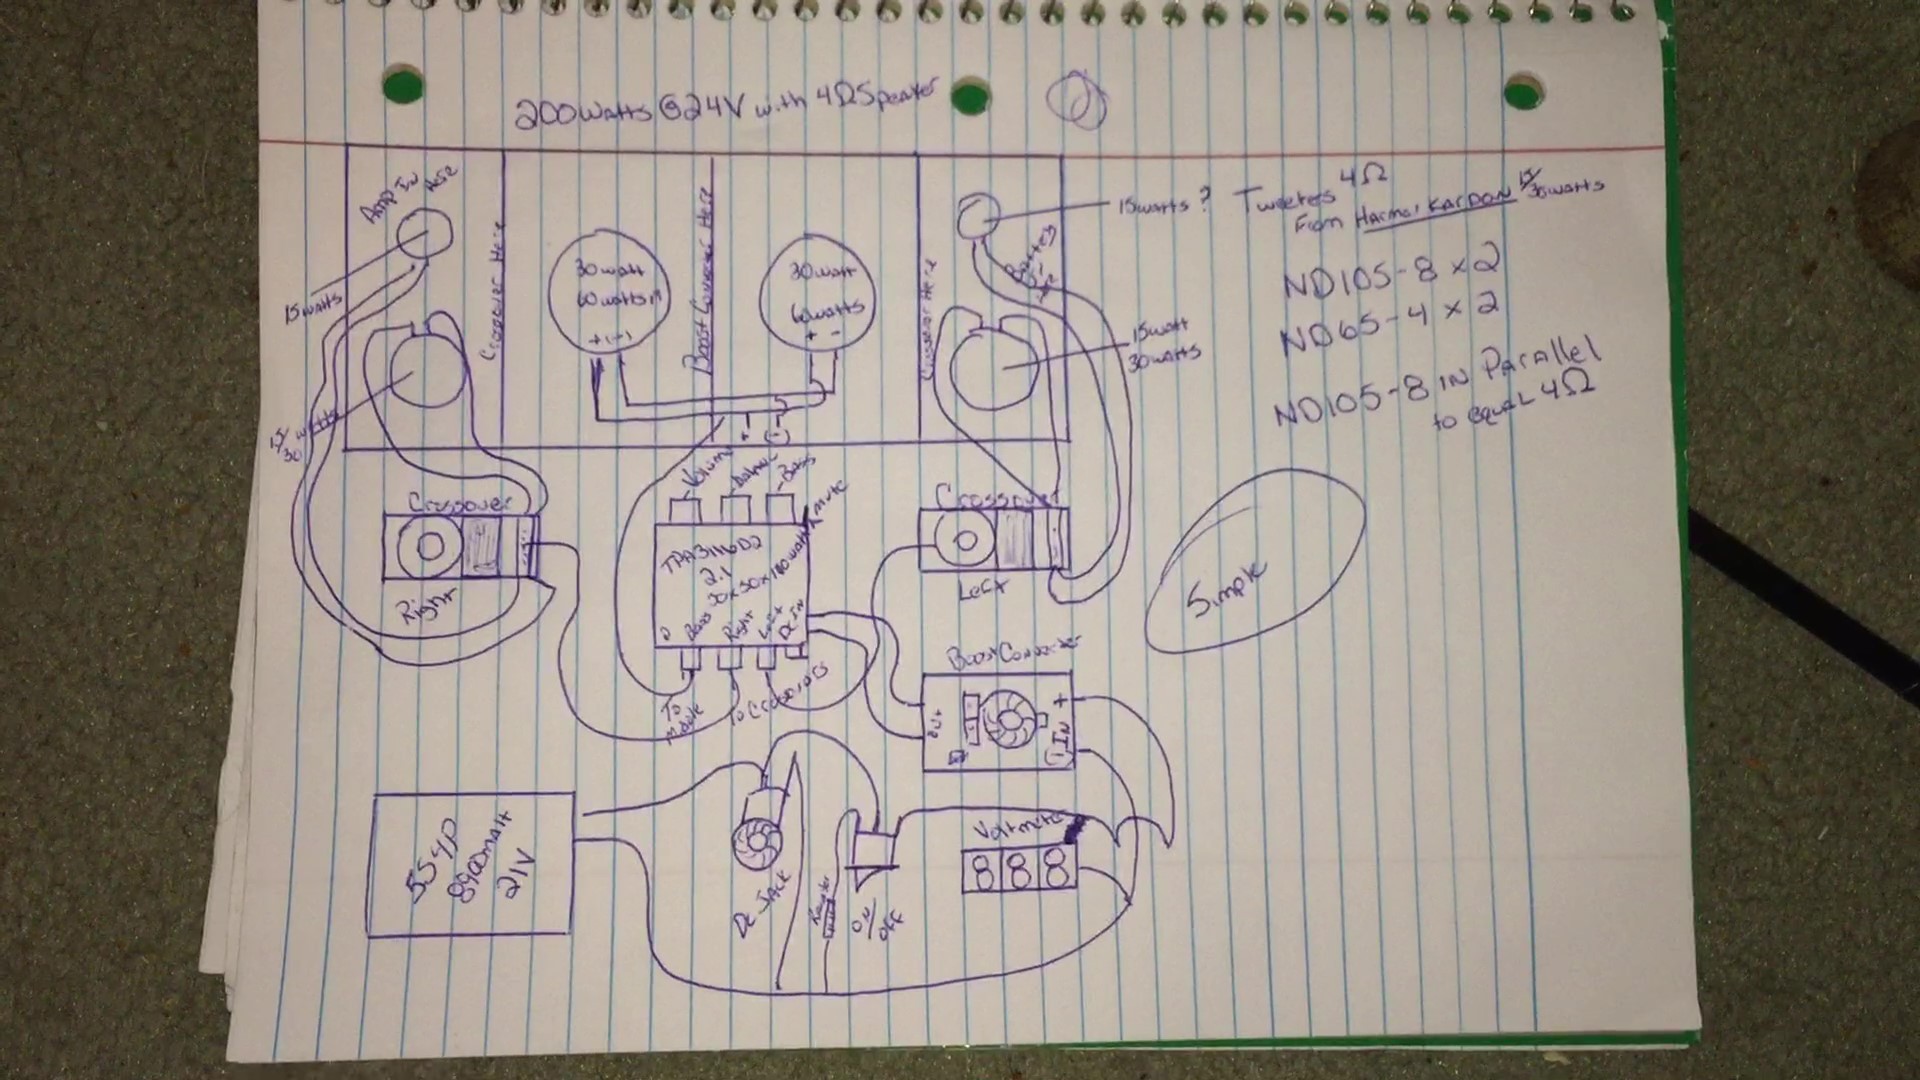 200watts @ 24V with 4Ω Speaker
Amp In
Here
15watts
Crossover Here
30watt
60watts
+ (-)
Boost Converter Here
30watt
60watts
+ -
Crossover Here
15watts ? Tweeters 4Ω
From Harman KARDON 15/30watts
15watt
30watts
ND105-8 x 2
ND65-4 x 2
ND105-8 IN Parallel
to equal 4Ω
15/30 watts
+ (-)
Volume
Bass
mute
Crossover
Right
TPA3116D2
2.1
50x50x100watt
Bass
Right
Left
DC IN
To
To Crossovers
Crossover
Left
Simple
Boost Converter
Out
+
IN
(-)
5S4P
8900mah
21V
DC Jack
ON
OFF
Voltmeter
888